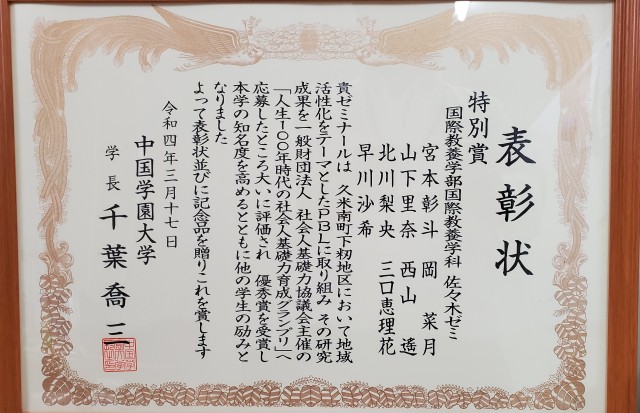 表彰状
特別賞
国際教養学部国際教養学科 佐々木ゼミ
宮本彰斗 岡 菜月
山下里奈 西山 遙
北川梨央 三口恵理花
早川沙希
貴ゼミナールは 久米南町下籾地区において地域
活性化をテーマとしたPBLに取り組み その研究
成果を一般財団法人 社会人基礎力協議会主催の
「人生100年時代の社会人基礎力育成グランプリ」へ
応募したところ大いに評価され 優秀賞を受賞し
本学の知名度を高めるとともに他の学生の励みと
なりました
よって表彰状並びに記念品を贈りこれを賞します
令和四年三月十七日
中国学園大学
学長 千葉喬三